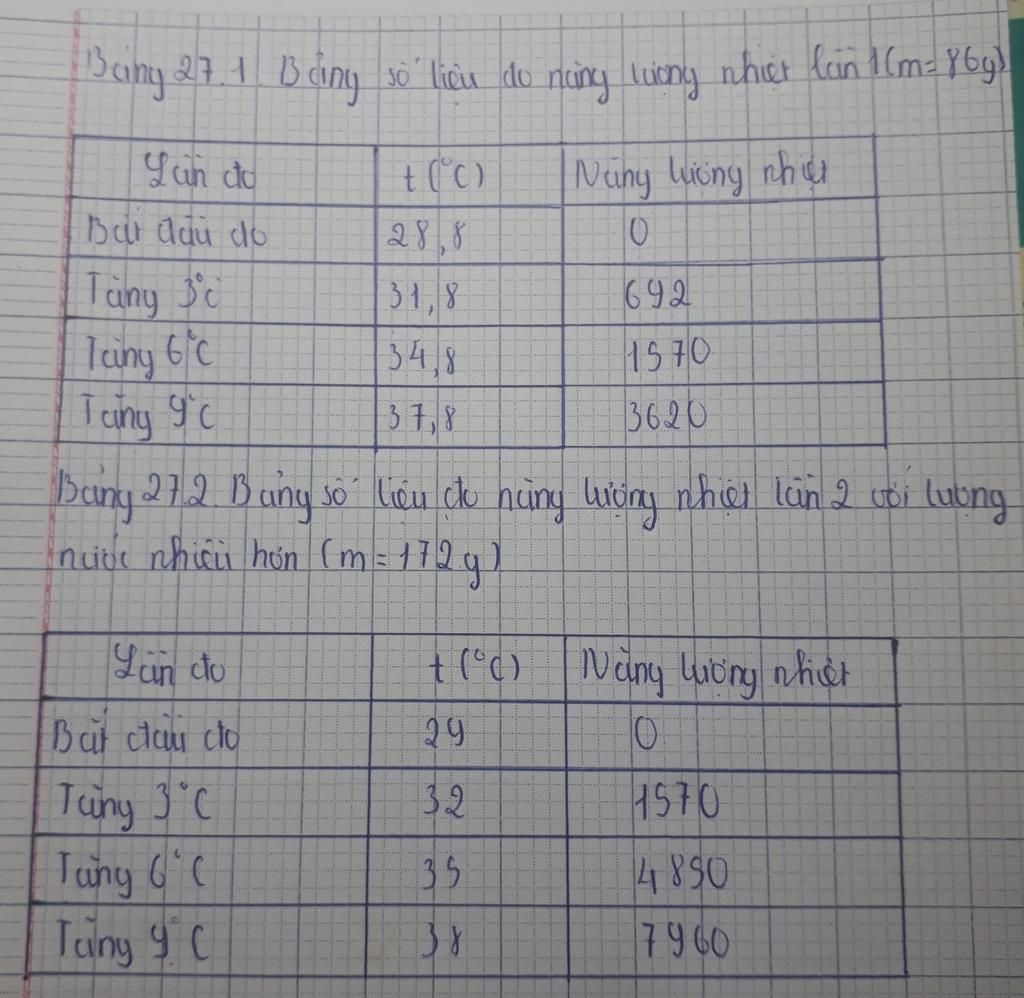 Bảng 27.1. Bảng số liệu đo năng lượng nhiệt lần 1 (m = 86g)
Lần đo t (°C) Năng lượng nhiệt
Bắt đầu đo 28,8 0
Tăng 3°C 31,8 692
Tăng 6°C 34,8 1570
Tăng 9°C 37,8 3620
Bảng 27.2. Bảng số liệu đo năng lượng nhiệt lần 2 với lượng
nước nhiều hơn (m = 172g)
Lần đo t (°C) Năng lượng nhiệt
Bắt đầu đo 29 0
Tăng 3°C 32 1570
Tăng 6°C 35 4850
Tăng 9°C 38 7960